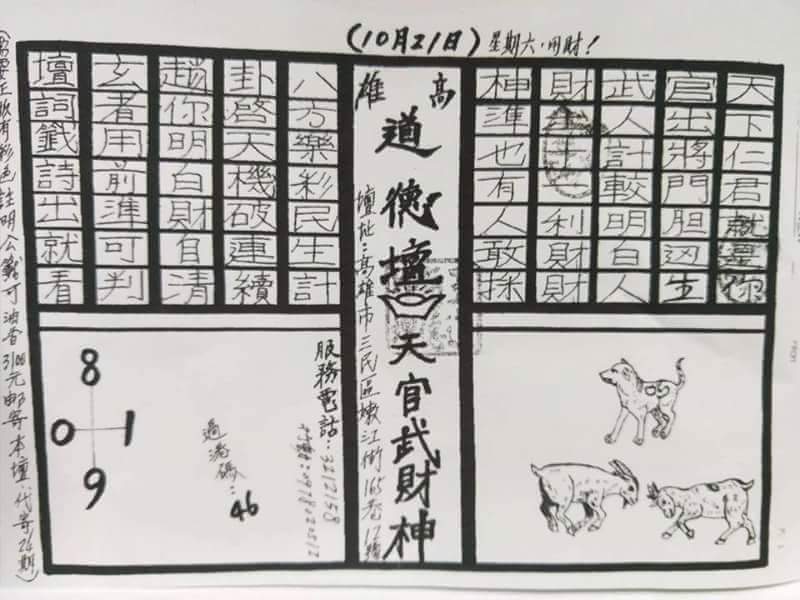 (10月21日) 星期六.用財！
天下仁君就是你
官出將門胆凶生
武人計較明白人
財利財財
神準也有人敢採
高雄
道德壇天官武財神
壇址：高雄市三民區嫩江街165巷12號
八方樂彩民生計
卦啓天機破連續
趙你明白財自清
玄者用前準可判
壇詞籤詩出就看
服務電話：3212158
過港碼：46
8
0 1
9
(需要正版有彩色註明公籤可油香3100元郵寄本壇.代寄24期)